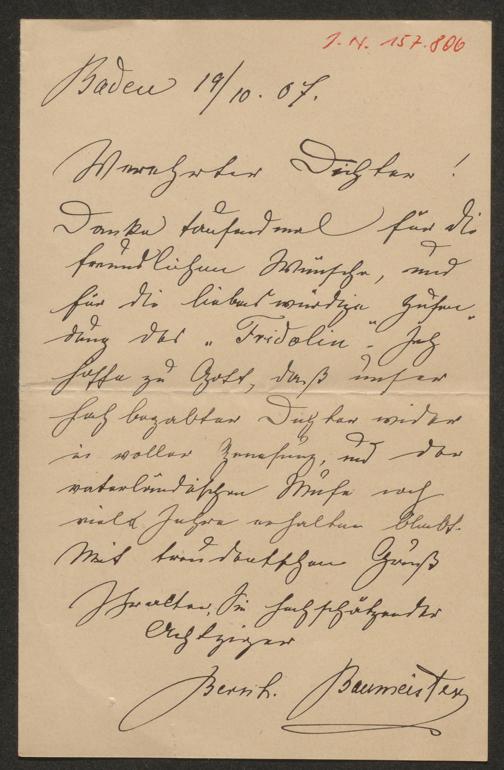 J.N. 157.806
Baden 19/10. 07.
Verehrter Dichter!
Danke tausendmal für die
freundlichen Wünsche, und
für die liebenswürdige Zusen-
dung des „Fridolin“. Ich
hoffe zu Gott, daß unser
hochbegabter Dichter wieder
in voller Genesung, und der
vaterländischen Muse noch
viele Jahre erhalten bleibt.
Mit treudeutschem Gruß
Ihr alter, Sie hochschätzender
Achtziger
Bernh. Baumeister